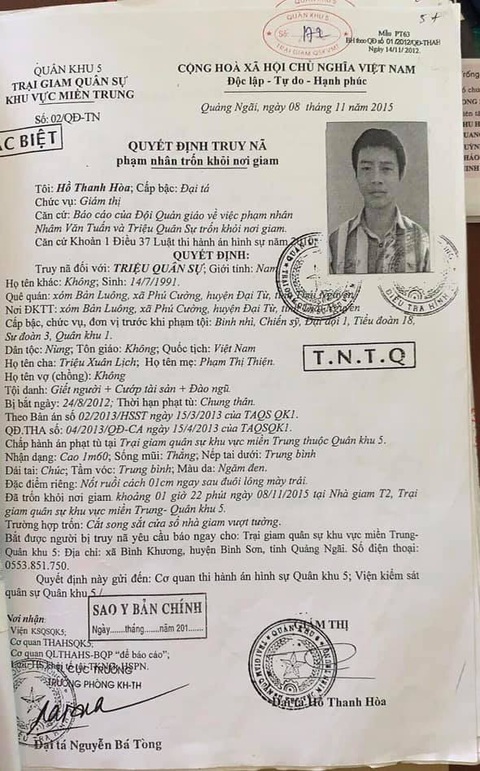 5+
QUÂN KHU 5
TRẠI GIAM QSKVMT
Số: 172
Mẫu PT63
BH theo QĐ số 01/2012/QĐ-THAH
Ngày 14/11/2012.
QUÂN KHU 5
TRẠI GIAM QUÂN SỰ
KHU VỰC MIỀN TRUNG
Số: 02/QĐ-TN
CỘNG HOÀ XÃ HỘI CHỦ NGHĨA VIỆT NAM
Độc lập - Tự do - Hạnh phúc
Quảng Ngãi, ngày 08 tháng 11 năm 2015
ẶC BIỆT
QUYẾT ĐỊNH TRUY NÃ
phạm nhân trốn khỏi nơi giam
Tôi: Hồ Thanh Hòa; Cấp bậc: Đại tá
Chức vụ: Giám thị
Căn cứ: Báo cáo của Đội Quản giáo về việc phạm nhân
Nhâm Văn Tuấn và Triệu Quân Sự trốn khỏi nơi giam.
Căn cứ Khoản 1 Điều 37 Luật thi hành án hình sự năm
QUYẾT ĐỊNH:
Truy nã đối với: TRIỆU QUÂN SỰ; Giới tính: Nam
Họ tên khác: Không; Sinh: 14/7/1991.
Quê quán: xóm Bản Luông, xã Phú Cường, huyện Đại Từ, tỉnh Thái Nguyên.
Nơi ĐKTT: xóm Bản Luông, xã Phú Cường, huyện Đại Từ, tỉnh Thái Nguyên
Cấp bậc, chức vụ, đơn vị trước khi phạm tội: Binh nhì, Chiến sỹ, Đại đội 1, Tiểu đoàn 18,
Sư đoàn 3, Quân khu 1.
Dân tộc: Nùng; Tôn giáo: Không; Quốc tịch: Việt Nam
Họ tên cha: Triệu Xuân Lịch; Họ tên mẹ: Phạm Thị Thiện.
Họ tên vợ (chồng): Không
T.N.T.Q
Tội danh: Giết người + Cướp tài sản + Đào ngũ.
Bị bắt ngày: 24/8/2012; Thời hạn phạt tù: Chung thân.
Theo Bản án số 02/2013/HSST ngày 15/3/2013 của TAQS QK1.
QĐ.THA số: 04/2013/QĐ-CA ngày 15/4/2013 của TAQSQK1.
Chấp hành án phạt tù tại Trại giam quân sự khu vực miền Trung thuộc Quân khu 5.
Nhận dạng: Cao 1m60; Sống mũi: Thẳng; Nếp tai dưới: Trung bình
Dái tai: Chúc; Tầm vóc: Trung bình; Màu da: Ngăm đen.
Đặc điểm riêng: Nốt ruồi cách 01cm ngay sau đuôi lông mày trái.
Đã trốn khỏi nơi giam khoảng 01 giờ 22 phút ngày 08/11/2015 tại Nhà giam T2, Trại
giam quân sự khu vực miền Trung- Quân khu 5.
Trường hợp trốn: Cắt song sắt cửa sổ nhà giam vượt tường.
Bắt được người bị truy nã yêu cầu báo ngay cho: Trại giam quân sự khu vực miền Trung-
Quân khu 5: Địa chỉ: xã Bình Khương, huyện Bình Sơn, tỉnh Quảng Ngãi. Số điện thoại:
0553.851.750.
Quyết định này gửi đến: Cơ quan thi hành án hình sự Quân khu 5; Viện kiểm sát
quân sự Quân khu 5./.
SAO Y BẢN CHÍNH
Ngày......tháng......năm 201......
Nơi nhận:
Viện KSQSQK5;
Cơ quan THAHSQK5;
Cơ quan QLTHAHS-BQP “để báo cáo”;
CỤC TRƯỞNG
TRƯỞNG PHÒNG KH-TH
Đại tá Nguyễn Bá Tòng
GIÁM THỊ
Đại tá Hồ Thanh Hòa